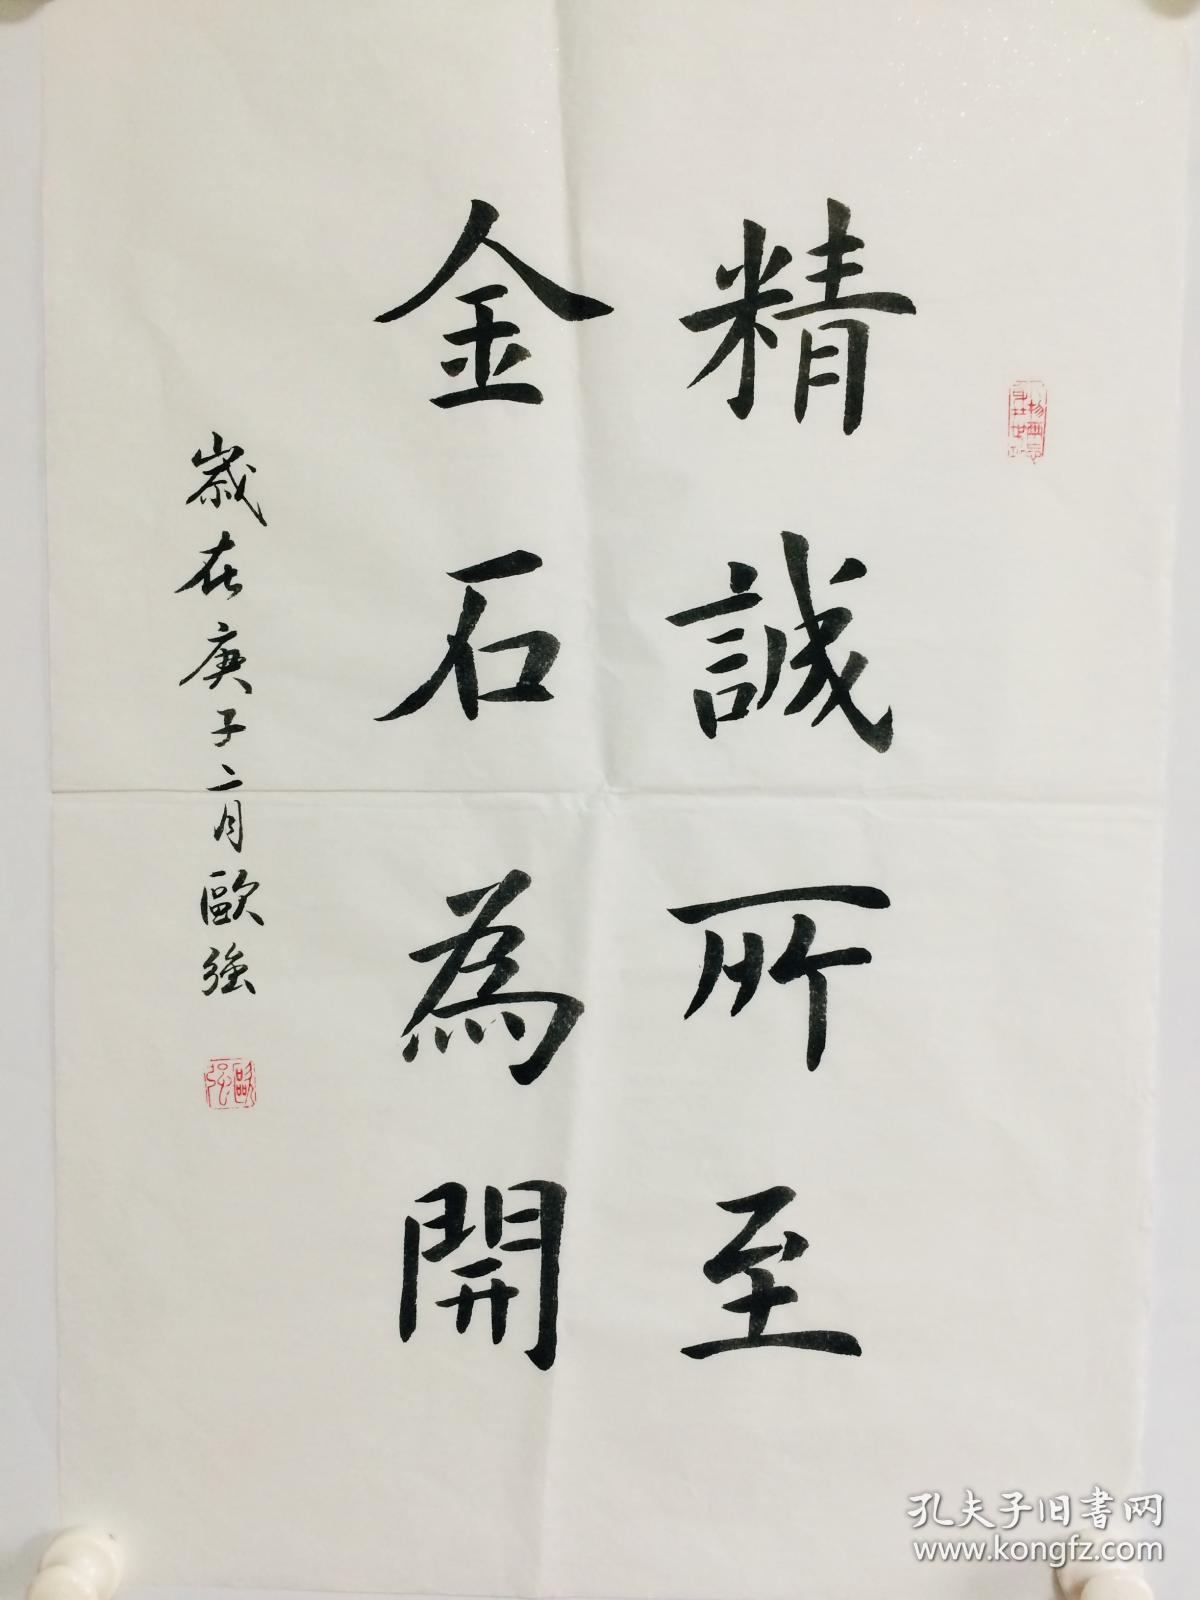 精誠所至
金石為開
歲在庚子二月歐強
歐強
孔夫子旧书网
www.kongfz.com